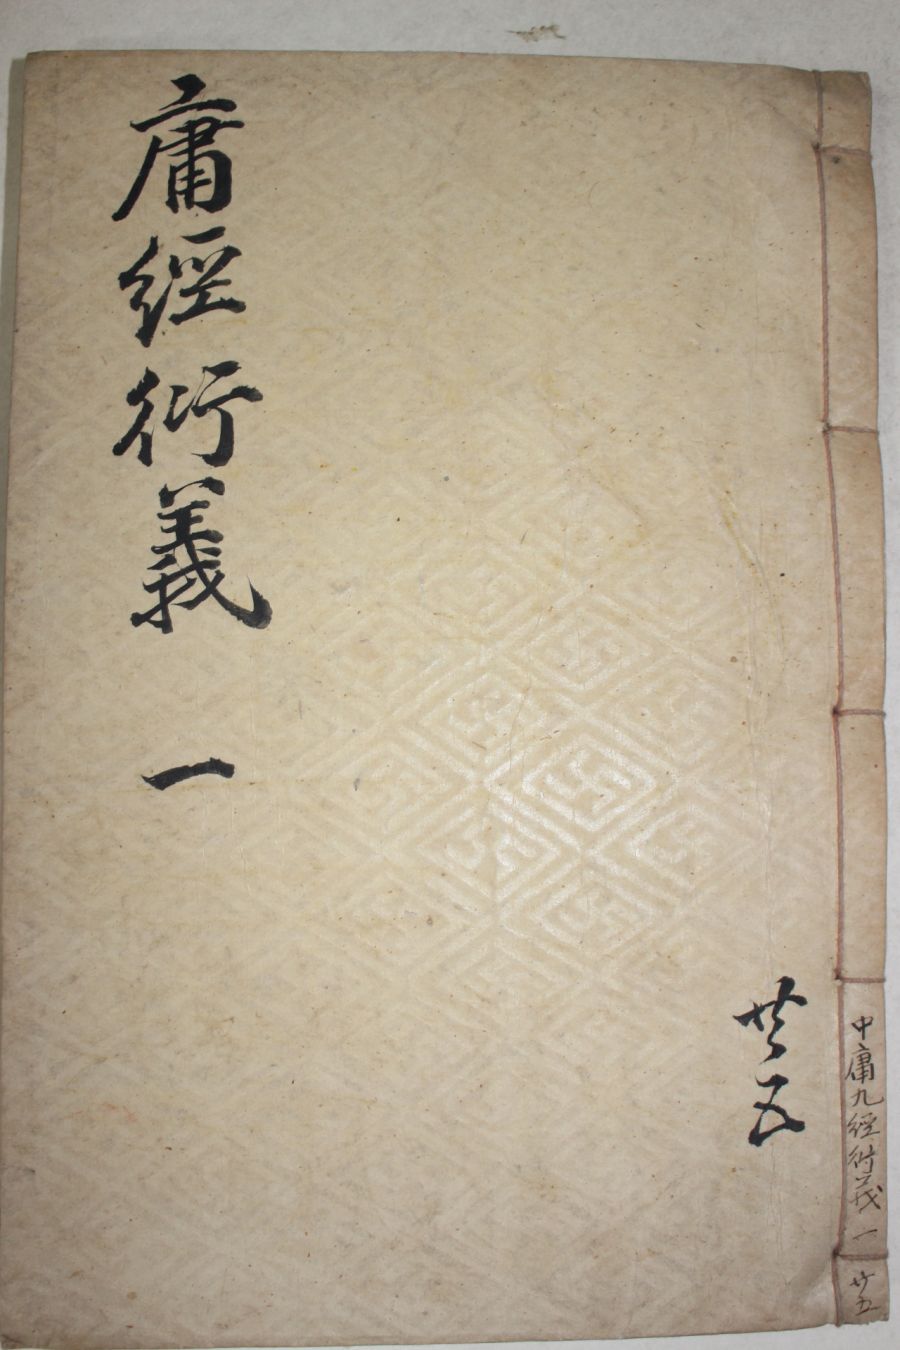 庸經衍義 一
共五
中庸九經衍義 一 廿五